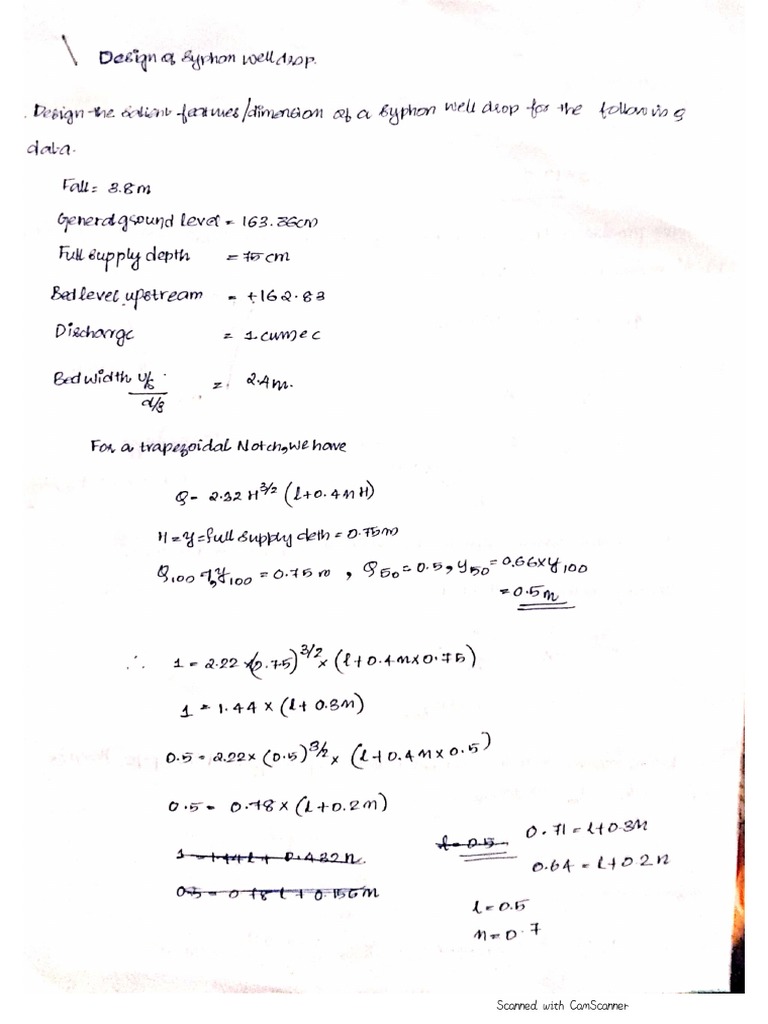 Design of Syphon well drop.
Design the salient features/dimension of a syphon well drop for the following
data.
Fall = 3.8m
General ground level = 163.36cm
Full supply depth = 75cm
Bed level upstream = +162.83
Discharge = 1 cumec
Bed width u/s = 2.4m.
d/s
For a trapezoidal Notch, we have
Q = 2.32 H^3/2 (l+0.4nH)
H = y = full supply deth = 0.75m
Q100 , y100 = 0.75m , Q50 = 0.5, y50 = 0.66xy100
= 0.5m
∴ 1 = 2.22 x(0.75)^3/2 x (l+0.4nx0.75)
1 = 1.44 x (l+ 0.3n)
0.5 = 2.22x (0.5)^3/2 x (l+0.4nx0.5)
0.5 = 0.78x (l+0.2n)
1 = 1.44l + 0.432n.
0.5 = 0.78l + 0.156n
l = 0.5
0.71 = l+0.3n
0.64 = l+0.2n
l = 0.5
n = 0.7
Scanned with CamScanner